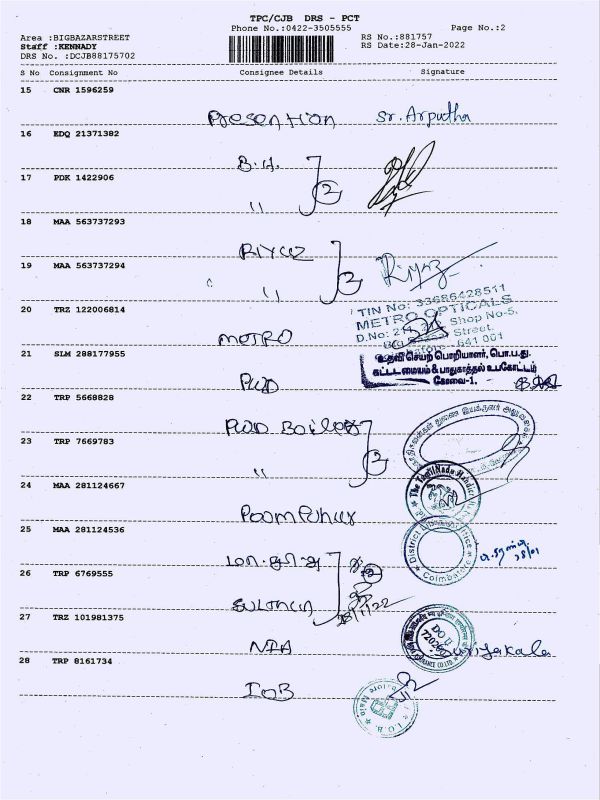 TPC/CJB DRS - PCT
Phone No.:0422-3505555
Page No.:2
Area :BIGBAZARSTREET
RS No.:881757
Staff :KENNADY
RS Date:28-Jan-2022
DRS No. :DCJB88175702
S No Consignment No Consignee Details Signature
15 CNR 1596259
Presention Sr. Arputha
16 EDQ 21371382
B.H. 2
17 PDK 1422906
"
18 MAA 563737293
Riyaz 2 Riyaz
19 MAA 563737294
"
TIN No: 33686428511
METRO OPTICALS
D.No: Shop No-5,
Street,
641 001
20 TRZ 122006814
METRO
21 SLM 288177955
உதவி செயற் பொறியாளர், பொ.ப.து.
கட்டட மையம் & பாதுகாத்தல் உபகோட்டம்
கோவை-1.
PWD
22 TRP 5668828
PWD Boiler 2
23 TRP 7669783
"
24 MAA 281124667
The TamilNadu Handicrafts
Poompuhar
25 MAA 281124536
District Office
Coimbatore
28/01
26 TRP 6769555
2
28/1/22
27 TRZ 101981375
NIA
DO II
Suriyakala
28 TRP 8161734
IOB
I.O.B.
Main